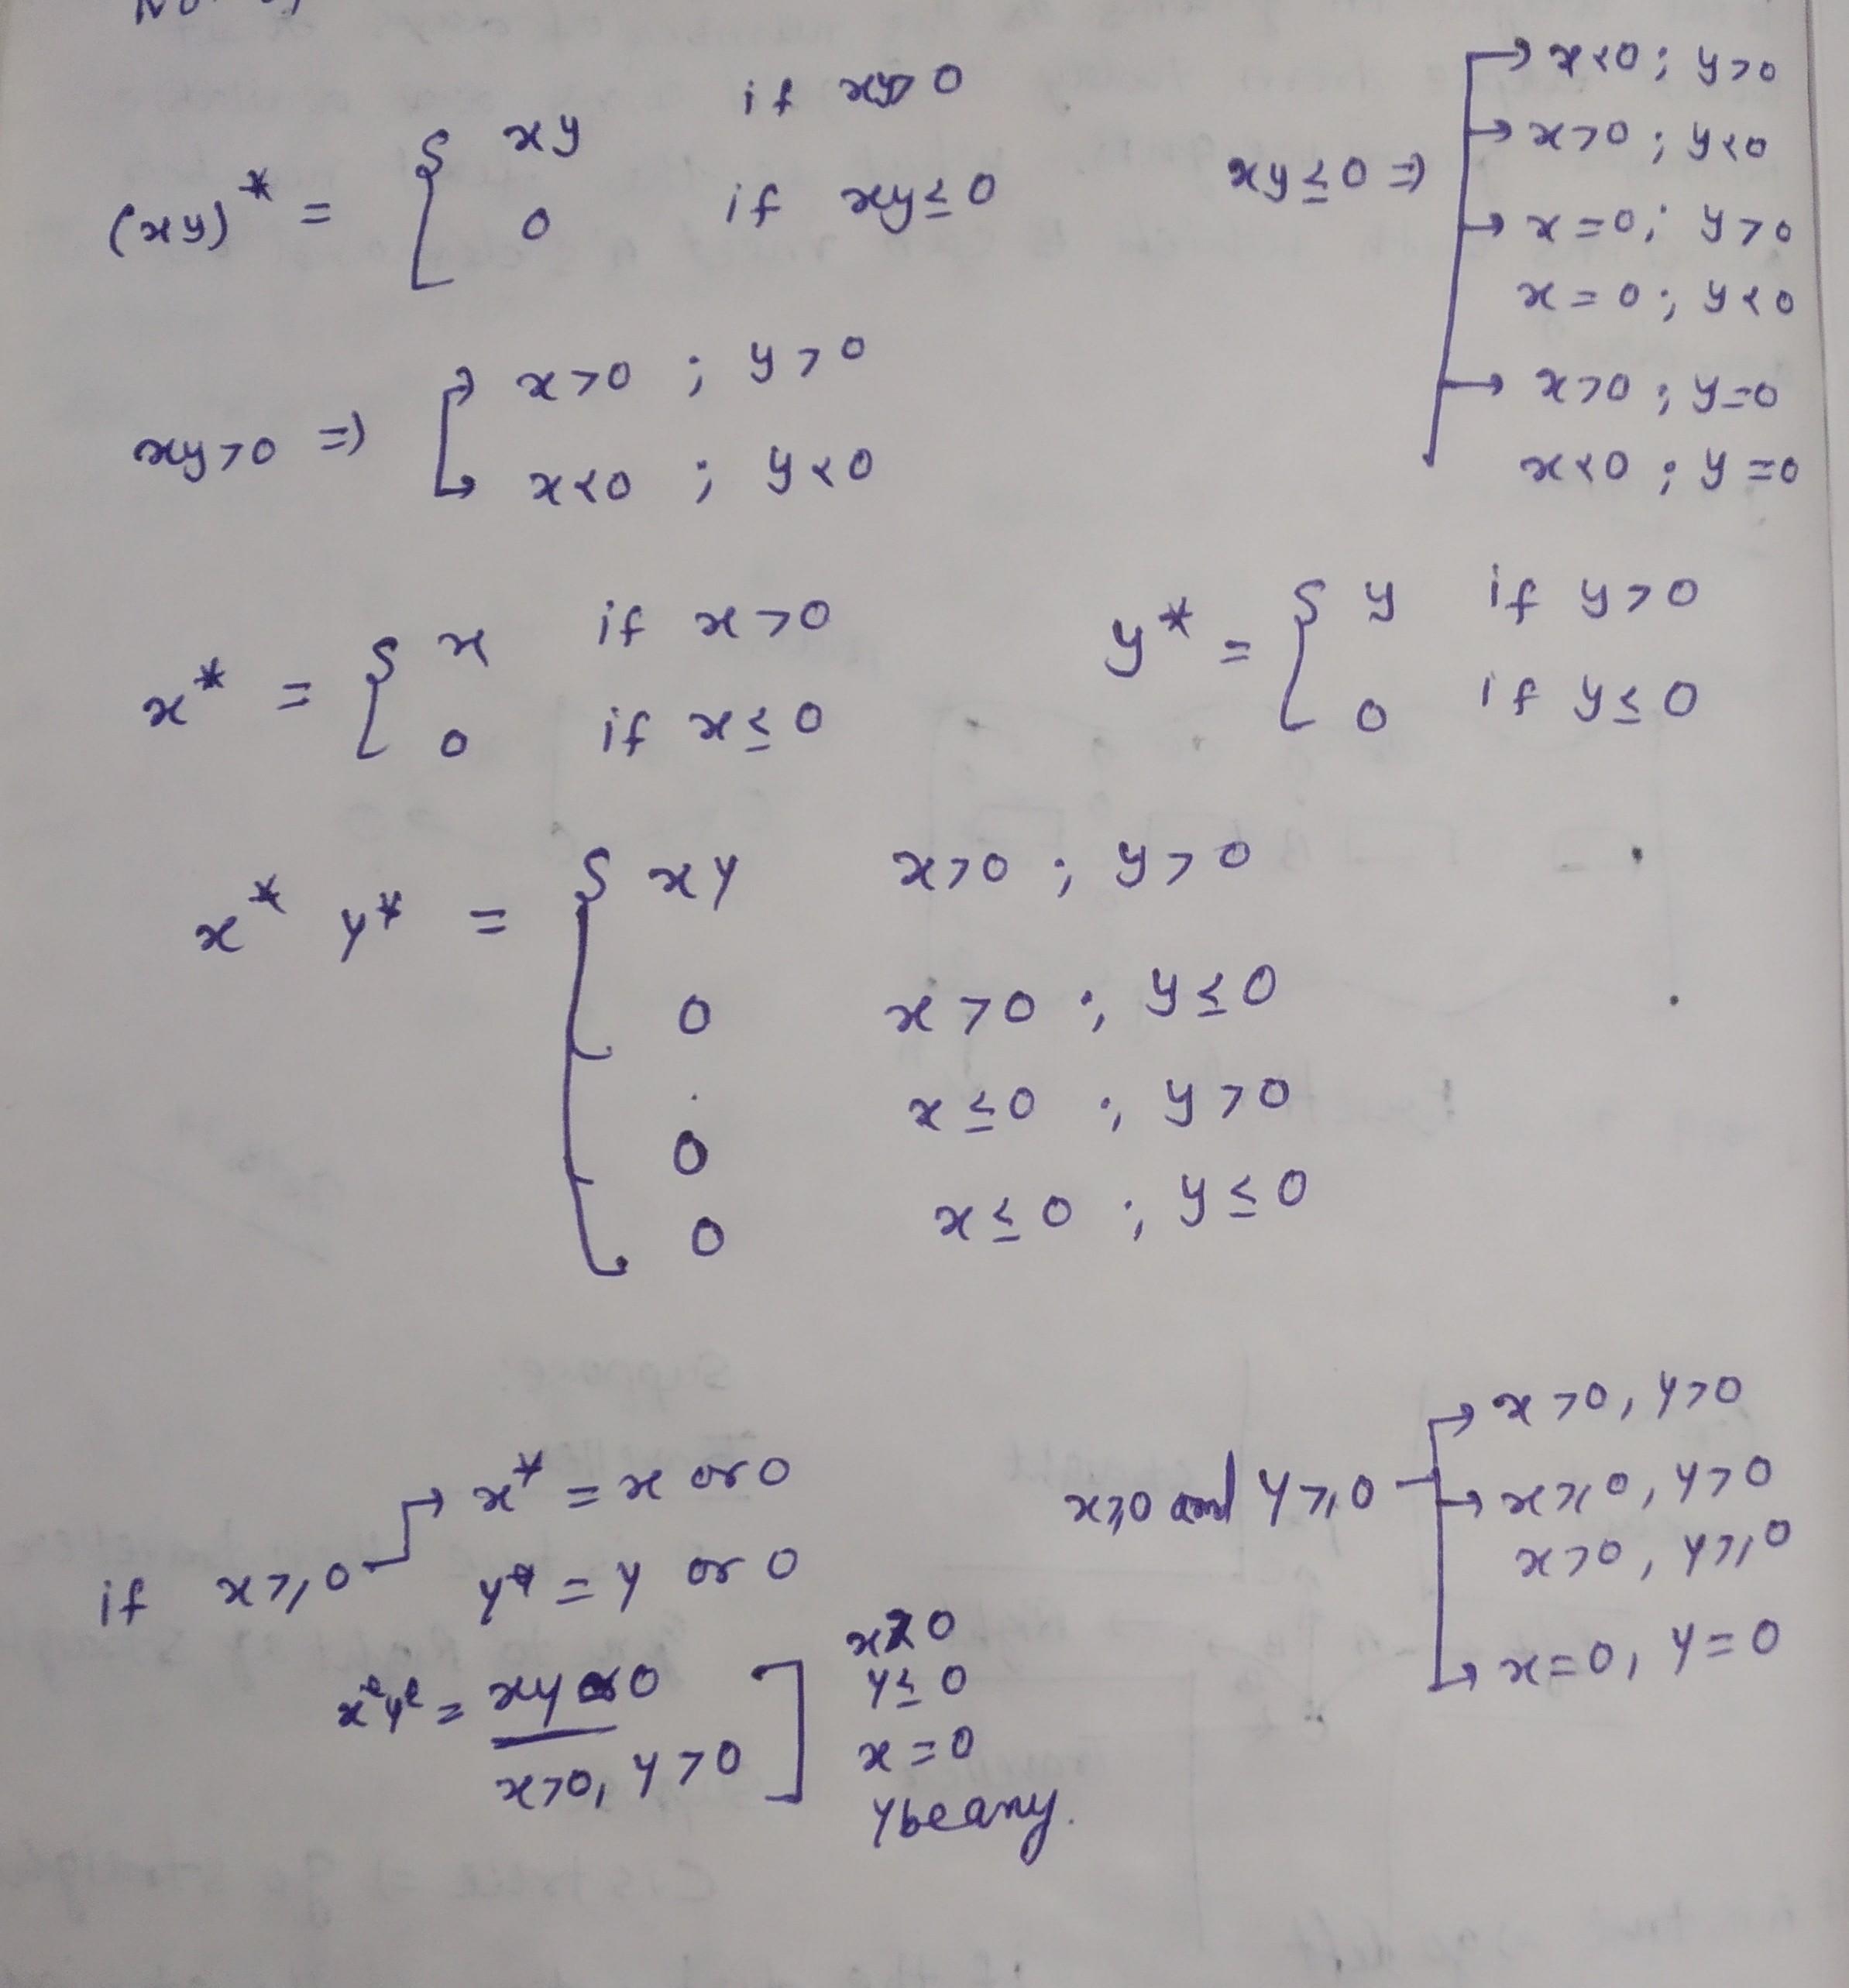 (xy)* = { xy if xy>0
0 if xy≤0
xy≤0 ⇒ → x<0 ; y>0
→ x>0 ; y<0
→ x=0 ; y>0
x=0 ; y<0
→ x>0 ; y=0
x<0 ; y=0
xy>0 ⇒ → x>0 ; y>0
→ x<0 ; y<0
x* = { x if x>0
0 if x≤0
y* = { y if y>0
0 if y≤0
x* y* = { xy x>0 ; y>0
0 x>0 ; y≤0
0 x≤0 ; y>0
0 x≤0 ; y≤0
if x≥0 → x* = x or 0
y* = y or 0
x*y* = xy or 0
x>0, y>0 ]
y≤0
x=0
y be any.
x≥0 and y≥0 → x>0, y>0
→ x≥0, y>0
x>0, y≥0
→ x=0, y=0